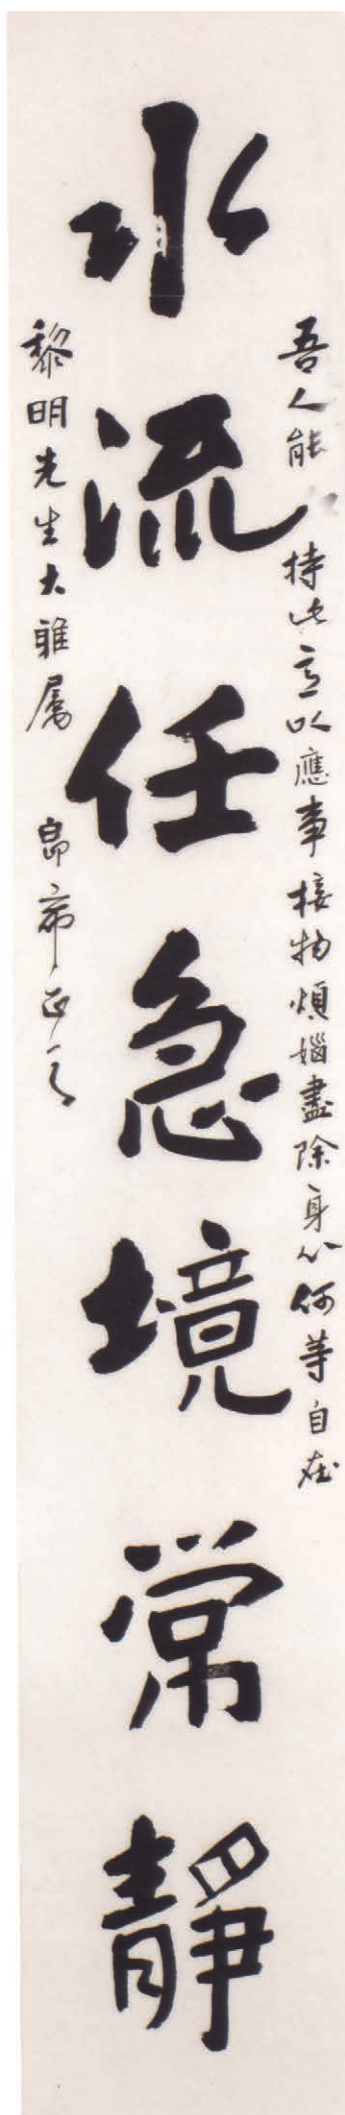 吾人能持此意以應事接物煩惱盡除身心何等自在
水流任急境常靜
黎明先生大雅屬 正之